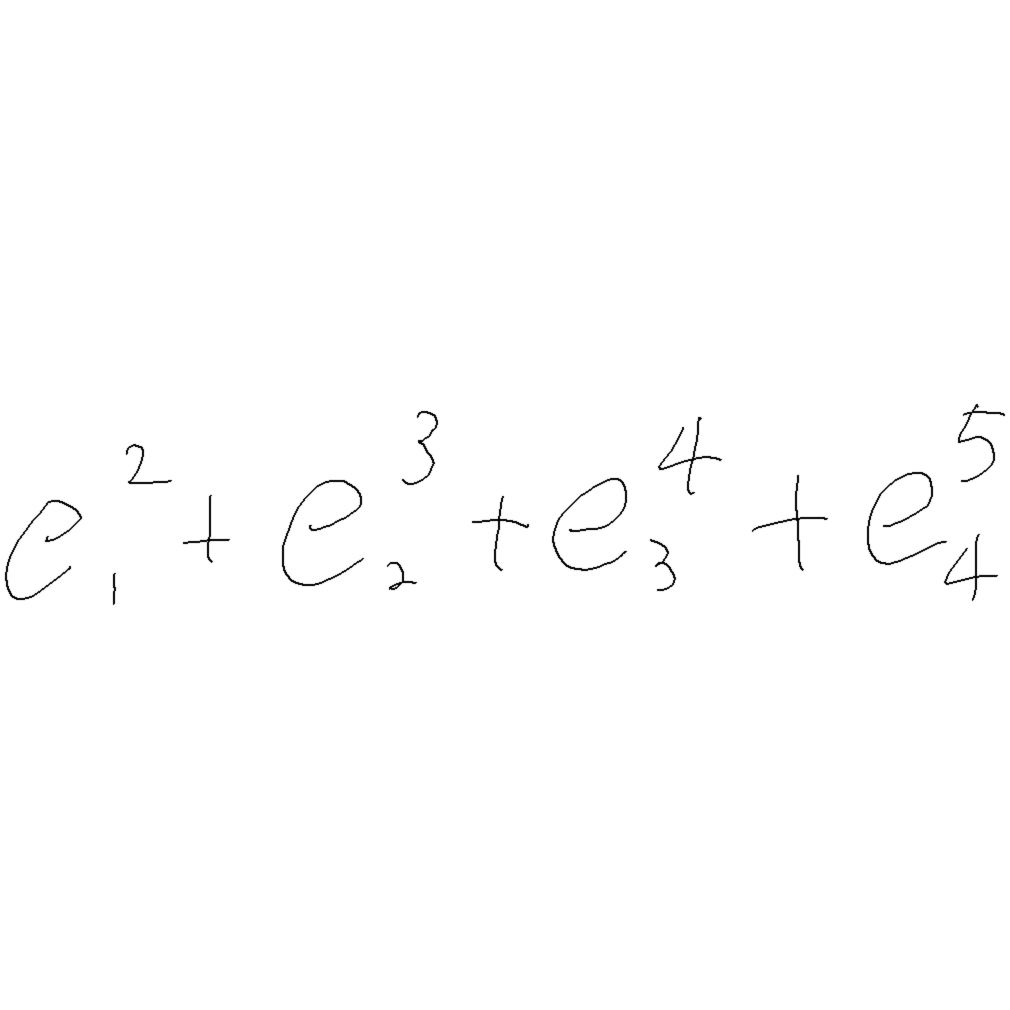 e₁² + e₂³ + e₃⁴ + e₄⁵